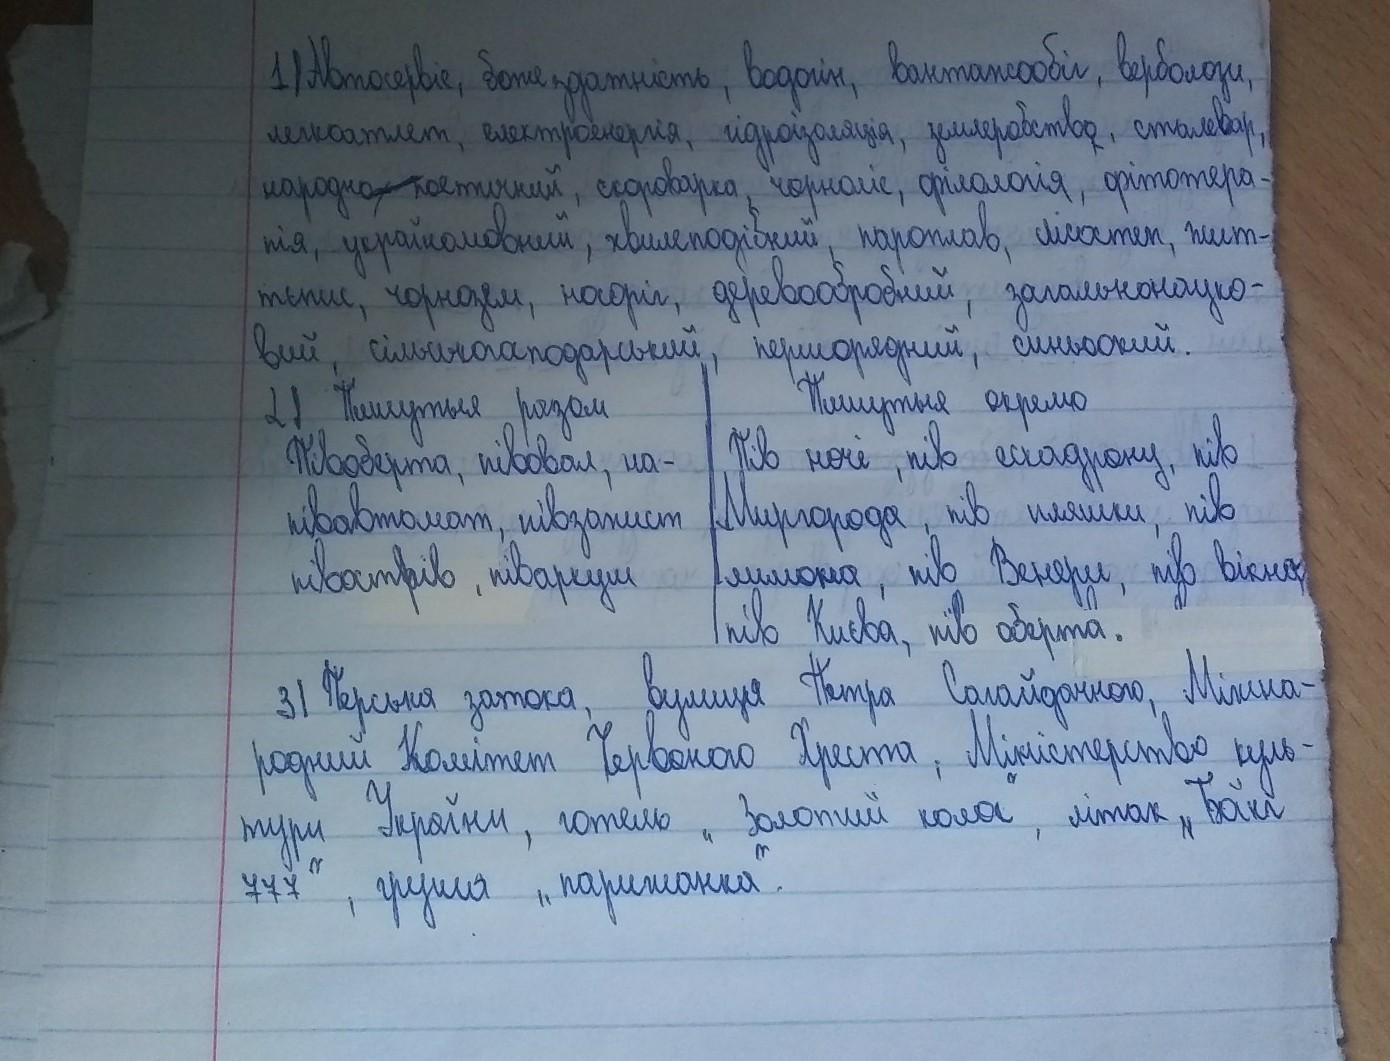 1) Автосервіс, боєздатність, водогін, вантажообіг, верболози,
легкоатлет, електроенергія, гідроізоляція, землеробство, сталевар,
народнопоетичний, скороварка, чорноліс, філологія, фітотера-
пія, україномовний, хвилеподібний, пароплав, лісостеп, жит-
тєпис, чорнозем, носоріг, деревообробний, загальнонауко-
вий, сільськогосподарський, першорядний, синьоокий.
2) Пишуться разом
Пишуться окремо
Півоберта, півовал, на-
півавтомат, півзахист
півострів, піваркуш
Пів ночі, пів ескадрону, пів
Миргорода, пів пляшки, пів
лимона, пів Венери, пів вікна,
пів Києва, пів оберта.
3) Перська затока, вулиця Петра Сагайдачного, Міжна-
родний Комітет Червоного Хреста, Міністерство куль-
тури України, готель „Золотий колос", літак „Боїнг
777", груша „парижанка".